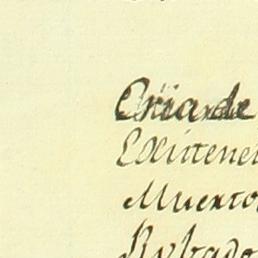 Cria de
Existenci
Muertos
Robado